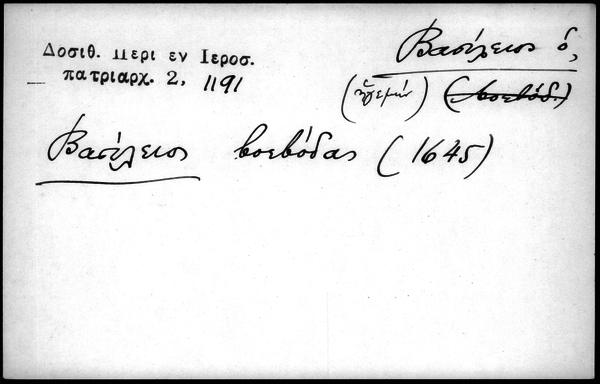 Δοσιθ. Περι εν Ιεροσ.
πατριαρχ. 2, 1191
Βασίλειος ὁ,
(ἡγεμών) (βοεβόδ.)
Βασίλειος βοεβόδας (1645)